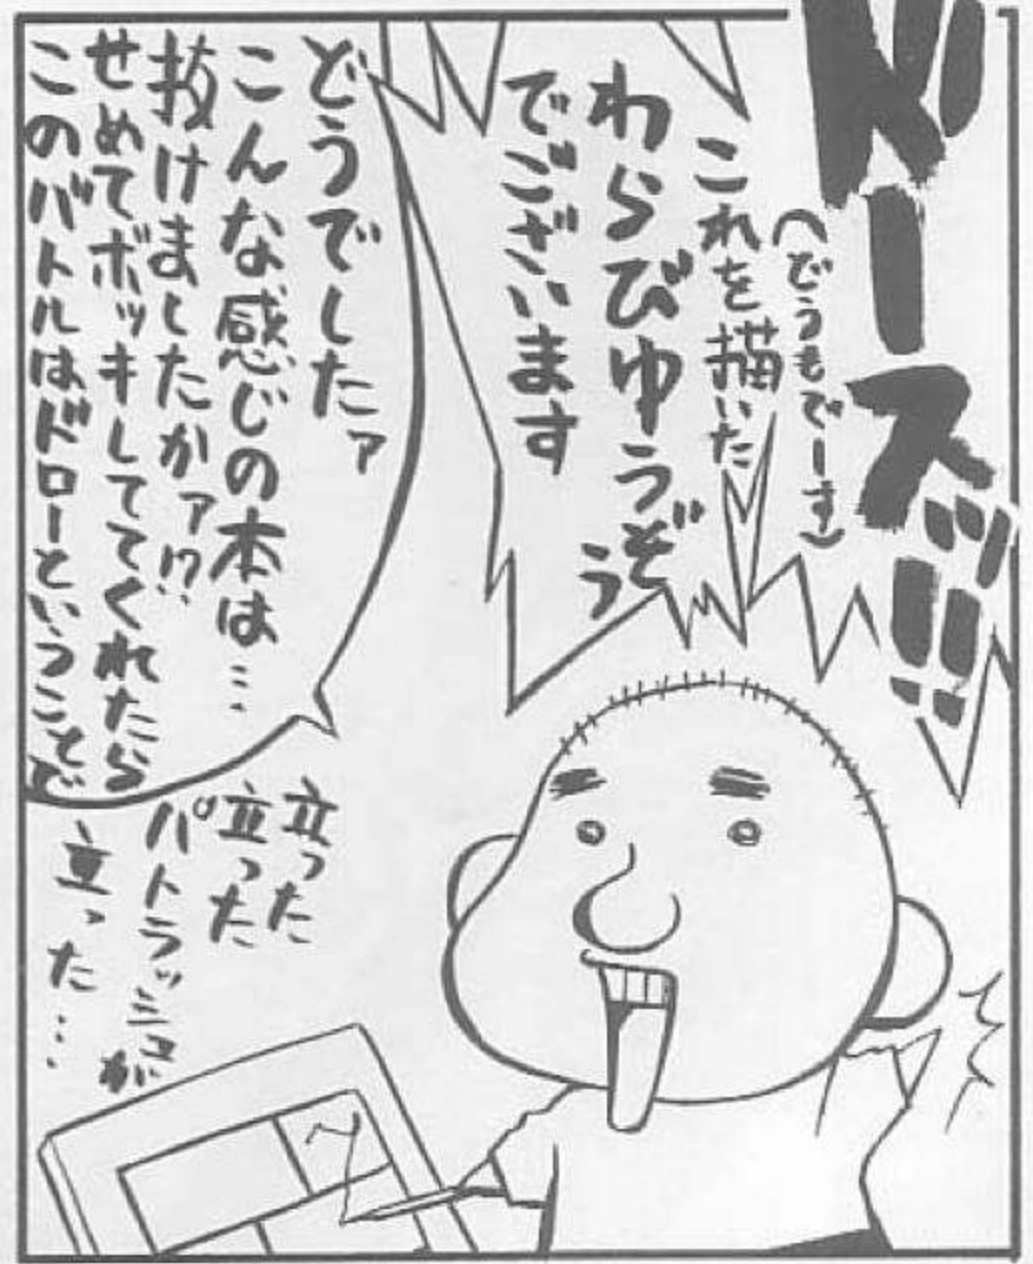 ドーースッ!!
(どうもでーす)
これを描いた
わらびゆうぞう
でございます
どうでしたァ
こんな感じの本は…
抜けましたかァ!?
せめてボッキしててくれたら
このバトルはドローということで
立った
立った
パトラッシュが
立った…